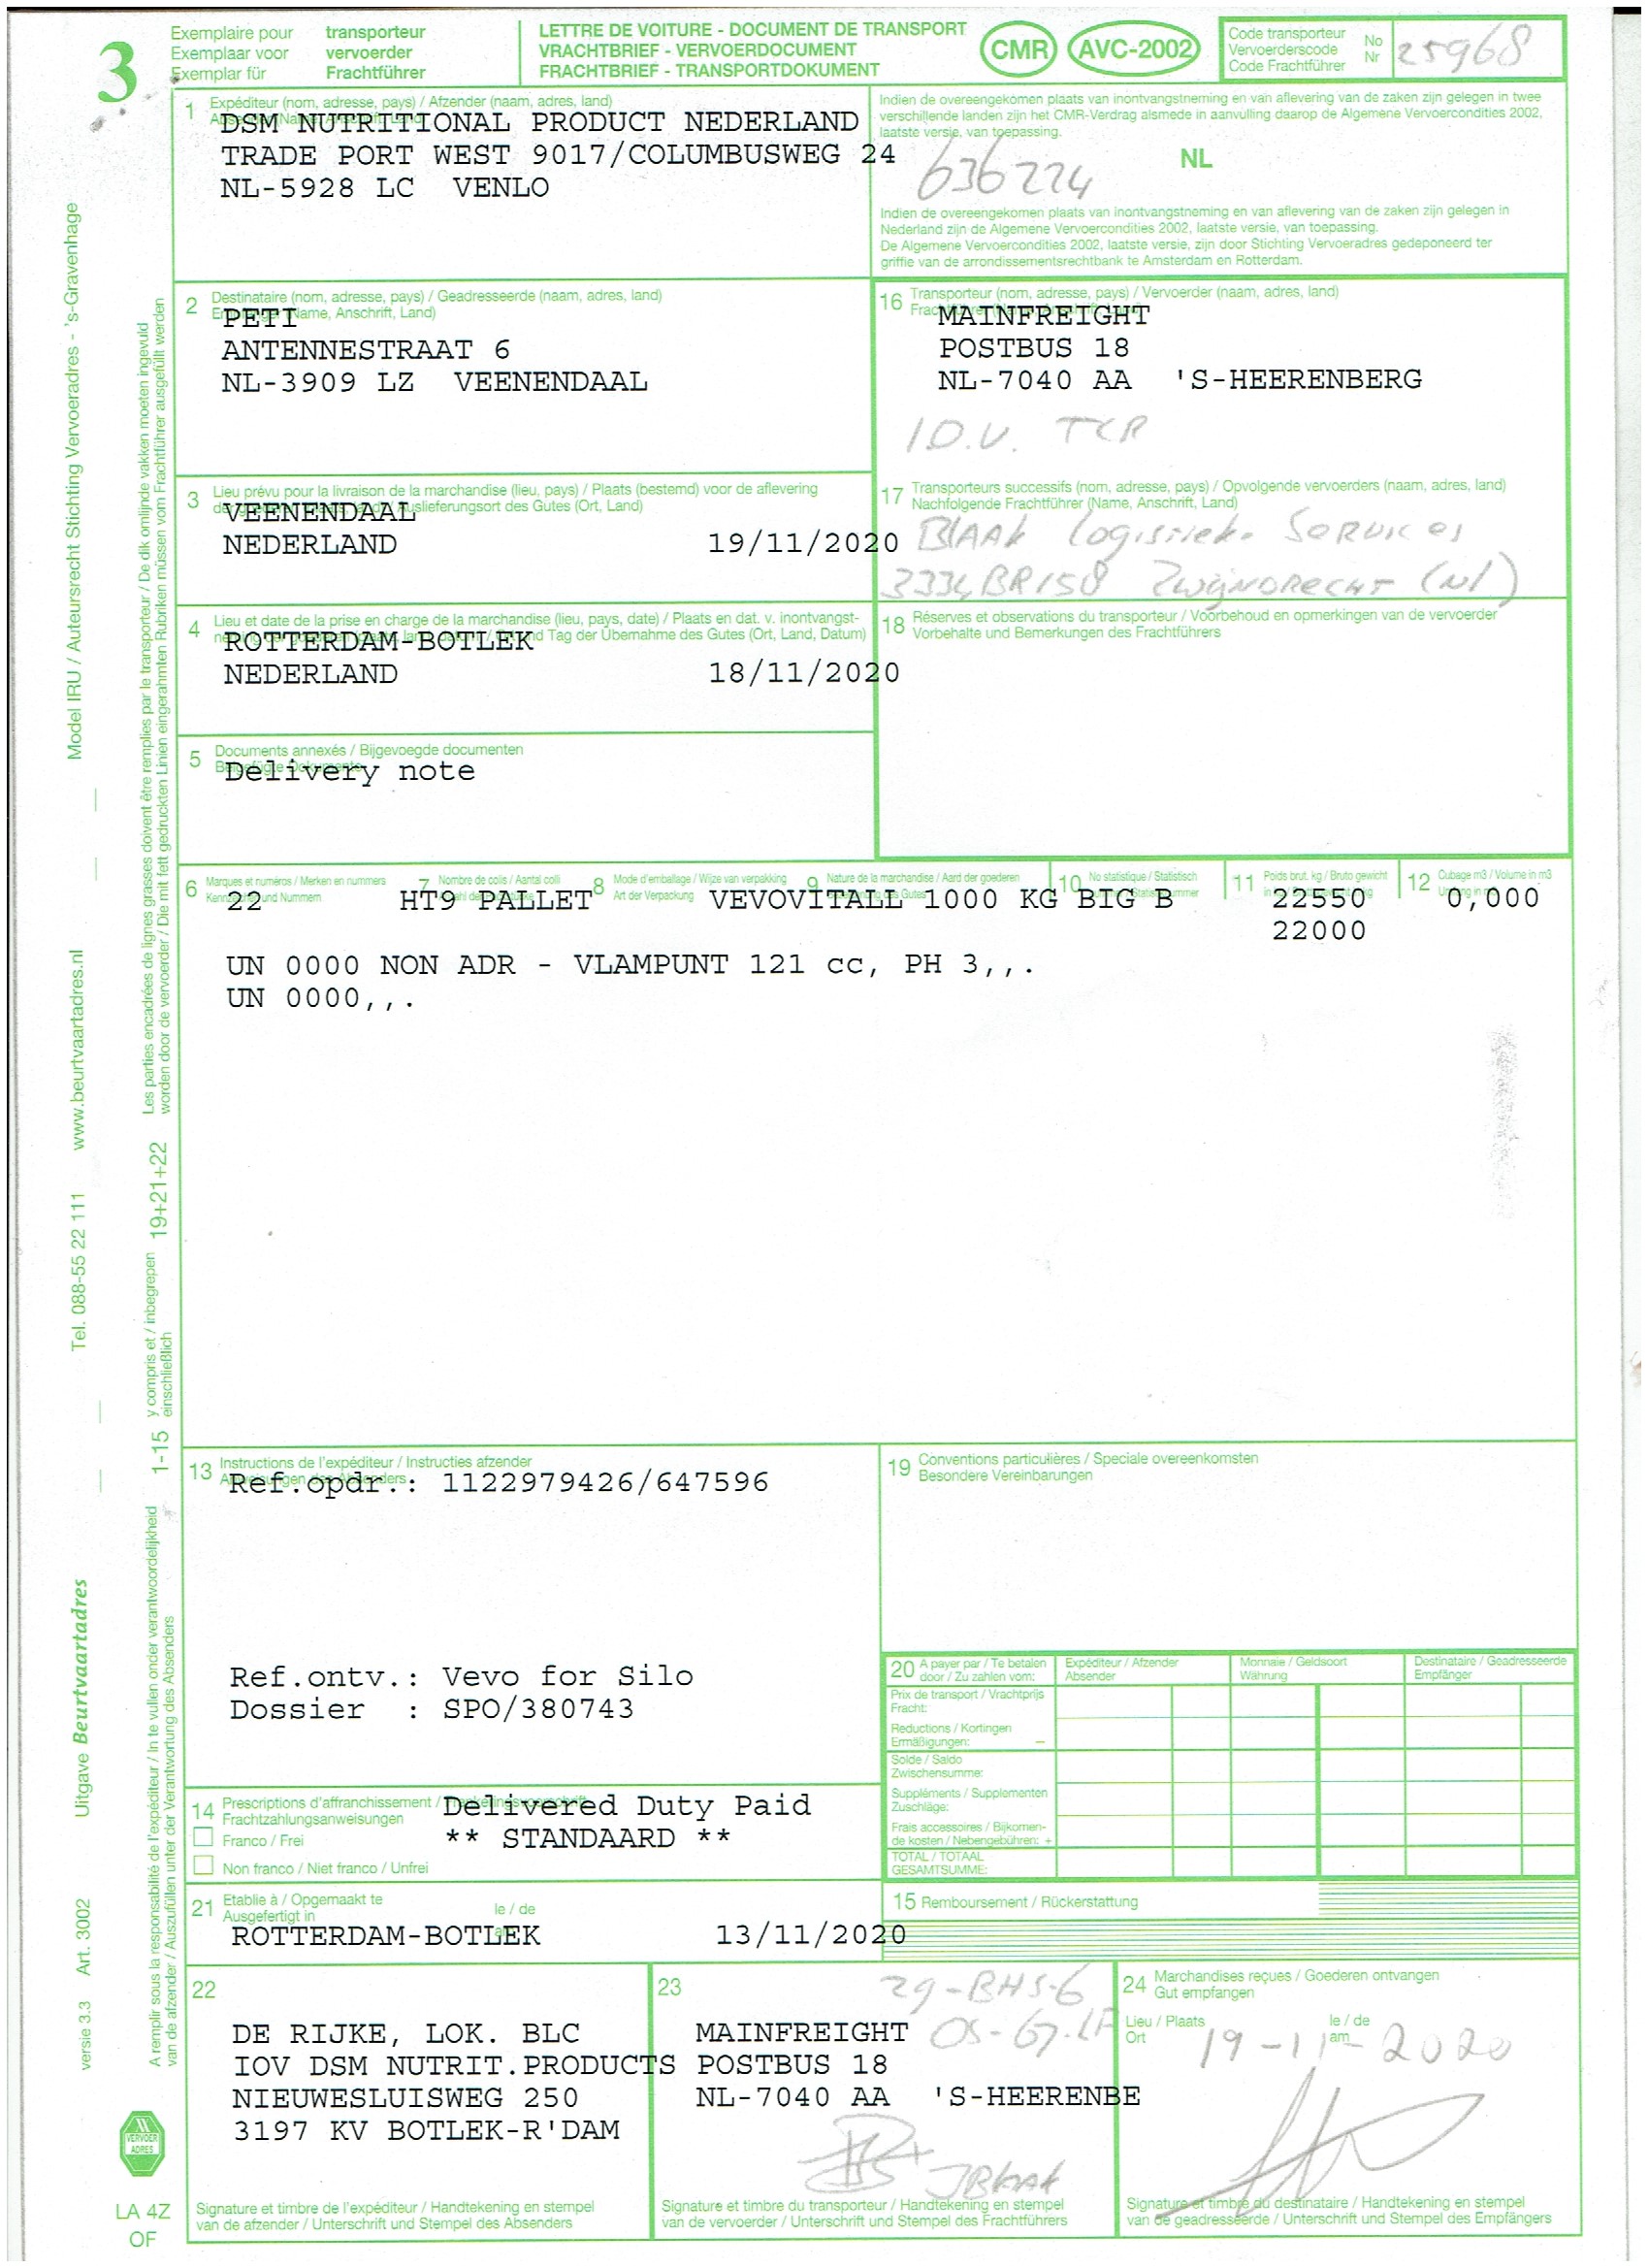 3
Exemplaire pour transporteur
Exemplaar voor vervoerder
Exemplar für Frachtführer
LETTRE DE VOITURE - DOCUMENT DE TRANSPORT
VRACHTBRIEF - VERVOERDOCUMENT
FRACHTBRIEF - TRANSPORTDOKUMENT
CMR
AVC-2002
Code transporteur
Vervoerderscode
Code Frachtführer
No
Nr
25968
1 Expéditeur (nom, adresse, pays) / Afzender (naam, adres, land)
DSM NUTRITIONAL PRODUCT NEDERLAND
TRADE PORT WEST 9017/COLUMBUSWEG 24
NL-5928 LC VENLO
Indien de overeengekomen plaats van inontvangstneming en van aflevering van de zaken zijn gelegen in twee
verschillende landen zijn het CMR-Verdrag alsmede in aanvulling daarop de Algemene Vervoercondities 2002,
laatste versie, van toepassing.
NL
636224
Indien de overeengekomen plaats van inontvangstneming en van aflevering van de zaken zijn gelegen in
Nederland zijn de Algemene Vervoercondities 2002, laatste versie, van toepassing.
De Algemene Vervoercondities 2002, laatste versie, zijn door Stichting Vervoeradres gedeponeerd ter
griffie van de arrondissementsrechtbank te Amsterdam en Rotterdam.
2 Destinataire (nom, adresse, pays) / Geadresseerde (naam, adres, land)
(Name, Anschrift, Land)
PETI
ANTENNESTRAAT 6
NL-3909 LZ VEENENDAAL
16 Transporteur (nom, adresse, pays) / Vervoerder (naam, adres, land)
MAINFREIGHT
POSTBUS 18
NL-7040 AA 'S-HEERENBERG
I.D.V. TCR
3 Lieu prévu pour la livraison de la marchandise (lieu, pays) / Plaats (bestemd) voor de aflevering
Auslieferungsort des Gutes (Ort, Land)
VEENENDAAL
NEDERLAND 19/11/2020
17 Transporteurs successifs (nom, adresse, pays) / Opvolgende vervoerders (naam, adres, land)
Nachfolgende Frachtführer (Name, Anschrift, Land)
BLAAK Logistieke Services
3334BR158 Zwijndrecht (Nl)
4 Lieu et date de la prise en charge de la marchandise (lieu, pays, date) / Plaats en dat. v. inontvangst-
und Tag der Übernahme des Gutes (Ort, Land, Datum)
ROTTERDAM-BOTLEK
NEDERLAND 18/11/2020
18 Réserves et observations du transporteur / Voorbehoud en opmerkingen van de vervoerder
Vorbehalte und Bemerkungen des Frachtführers
5 Documents annexés / Bijgevoegde documenten
Delivery note
6 Marques et numéros / Merken en nummers
7 Nombre de colis / Aantal colli
8 Mode d'emballage / Wijze van verpakking
Art der Verpackung
9 Nature de la marchandise / Aard der goederen
10 No statistique / Statistisch
11 Poids brut. kg / Bruto gewicht
12 Cubage m3 / Volume in m3
22 HT9 PALLET VEVOVITALL 1000 KG BIG B 22550 0,000
22000
UN 0000 NON ADR - VLAMPUNT 121 cc, PH 3,,.
UN 0000,,.
13 Instructions de l'expéditeur / Instructies afzender
Ref.opdr.: 1122979426/647596
Ref.ontv.: Vevo for Silo
Dossier : SPO/380743
19 Conventions particulières / Speciale overeenkomsten
Besondere Vereinbarungen
20 A payer par / Te betalen
door / Zu zahlen vom:
Expéditeur / Afzender
Absender
Monnaie / Geldsoort
Währung
Destinataire / Geadresseerde
Empfänger
Prix de transport / Vrachtprijs
Fracht:
Reductions / Kortingen
Ermäßigungen: –
Solde / Saldo
Zwischensumme:
Suppléments / Supplementen
Zuschläge:
Frais accessoires / Bijkomen-
de kosten / Nebengebühren: +
TOTAL / TOTAAL
GESAMTSUMME:
14 Prescriptions d'affranchissement /
Frachtzahlungsanweisungen
Delivered Duty Paid
** STANDAARD **
Franco / Frei
Non franco / Niet franco / Unfrei
21 Etablie à / Opgemaakt te
Ausgefertigt in
le / de
ROTTERDAM-BOTLEK 13/11/2020
15 Remboursement / Rückerstattung
22
DE RIJKE, LOK. BLC
IOV DSM NUTRIT.PRODUCTS
NIEUWESLUISWEG 250
3197 KV BOTLEK-R'DAM
Signature et timbre de l'expéditeur / Handtekening en stempel
van de afzender / Unterschrift und Stempel des Absenders
23
29-BHS-6
OS-67-LF
MAINFREIGHT
POSTBUS 18
NL-7040 AA 'S-HEERENBE
JBlaak
Signature et timbre du transporteur / Handtekening en stempel
van de vervoerder / Unterschrift und Stempel des Frachtführers
24 Marchandises reçues / Goederen ontvangen
Gut empfangen
Lieu / Plaats
Ort
le / de
am
19-11-2020
Signature et timbre du destinataire / Handtekening en stempel
van de geadresseerde / Unterschrift und Stempel des Empfängers
Model IRU / Auteursrecht Stichting Vervoeradres - 's-Gravenhage
www.beurtvaartadres.nl
Tel. 088-55 22 111
Uitgave Beurtvaartadres
Art. 3002
versie 3.3
Les parties encadrées de lignes grasses doivent être remplies par le transporteur / De dik omlijnde vakken moeten ingevuld
worden door de vervoerder / Die mit fett gedruckten Linien eingerahmten Rubriken müssen vom Frachtführer ausgefüllt werden
19+21+22
y compris et / inbegrepen
einschließlich
1-15
A remplir sous la responsabilité de l'expéditeur / In te vullen onder verantwoordelijkheid
van de afzender / Auszufüllen unter der Verantwortung des Absenders
VERVOER
ADRES
LA 4Z
OF